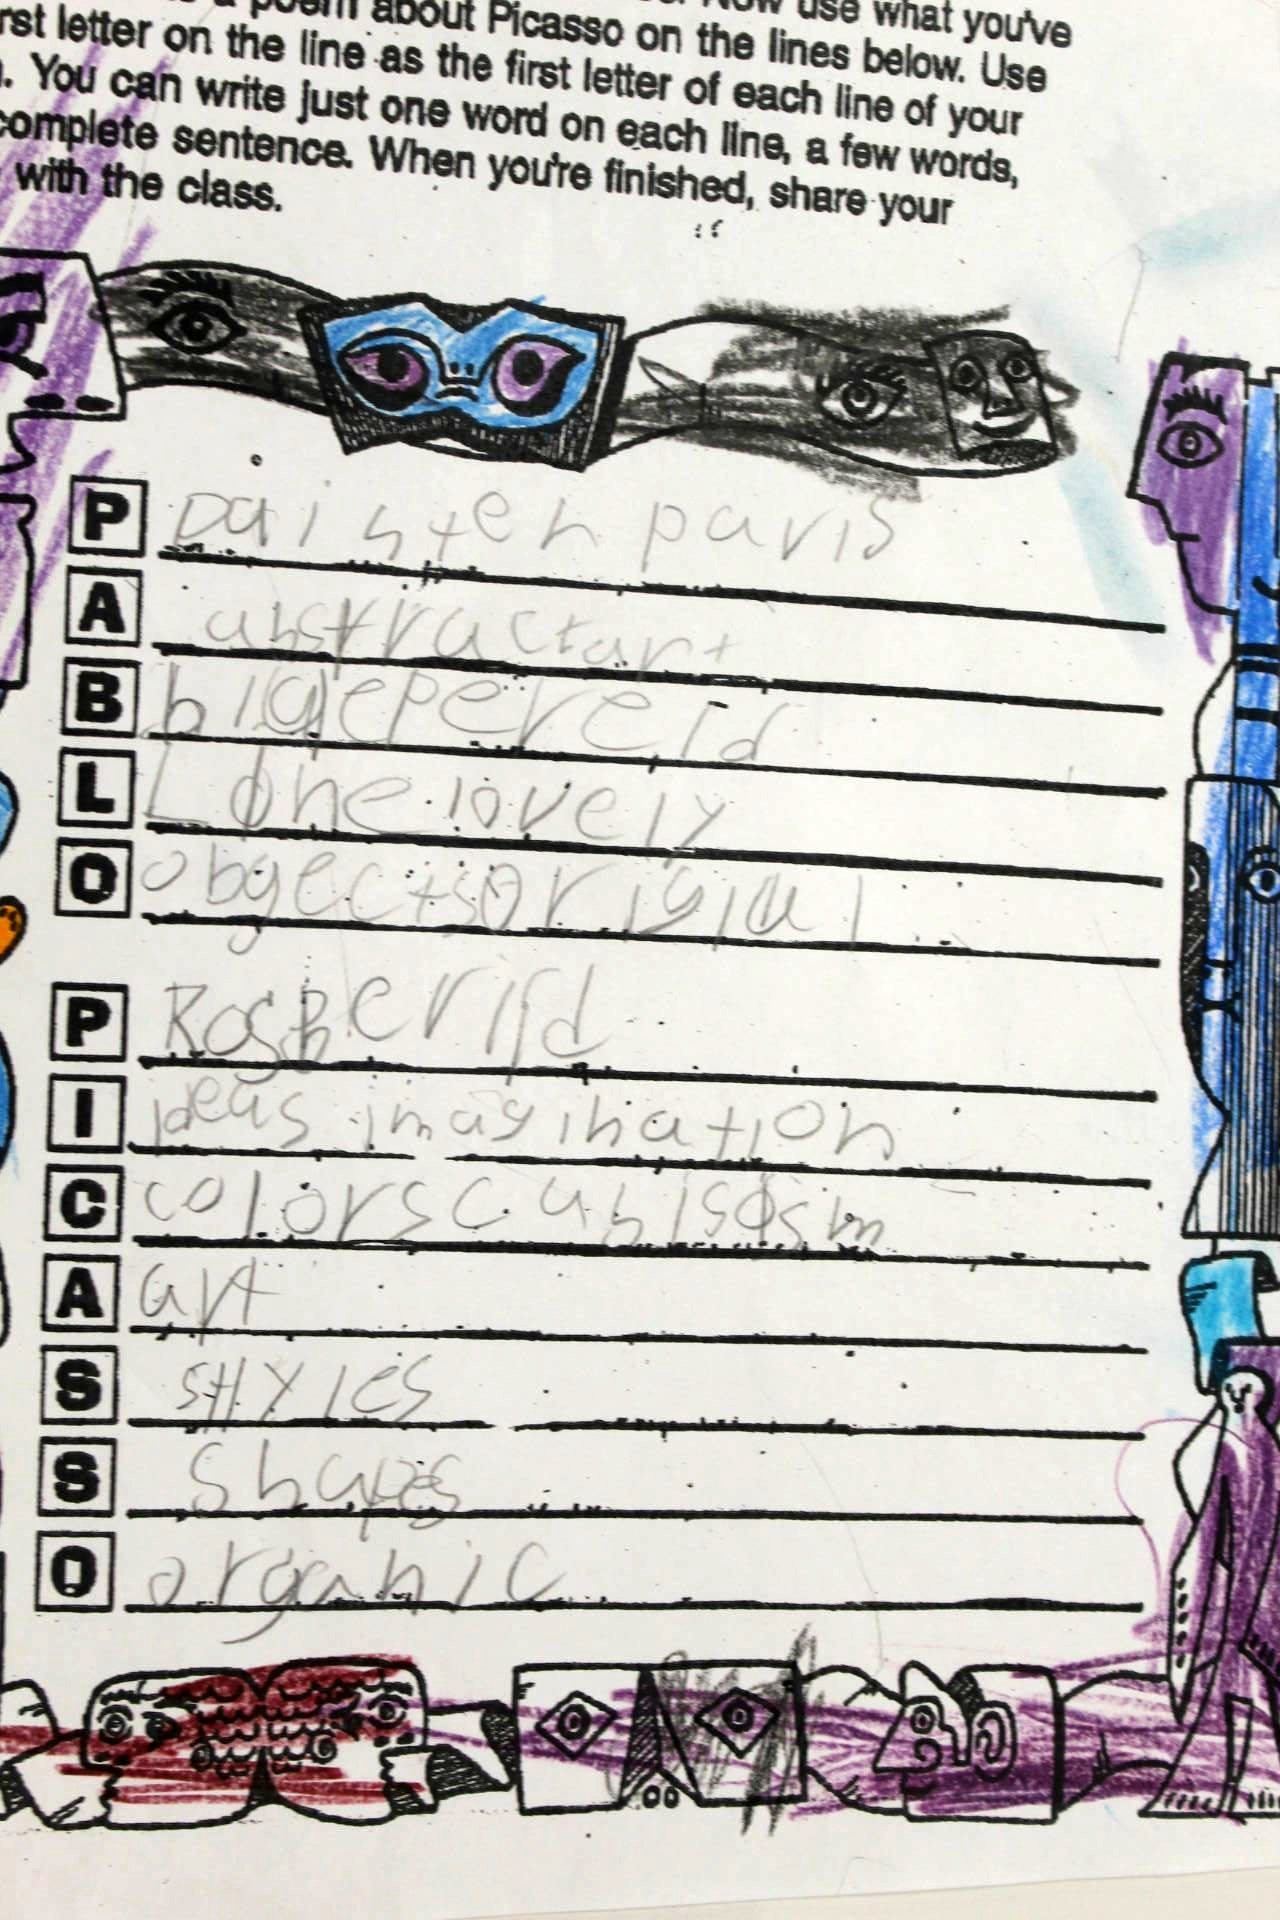 a poem about Picasso on the lines below. Use
Now use what you've
rst letter on the line as the first letter of each line of your
. You can write just one word on each line, a few words,
complete sentence. When you're finished, share your
with the class.
P Painter paris
A abstract art
B blqepereid
L Lone lovely
O obgects origial
P RosePeriid
I ideas imagination
C colors cubisosm
A art
S styles
S shapes
O organic